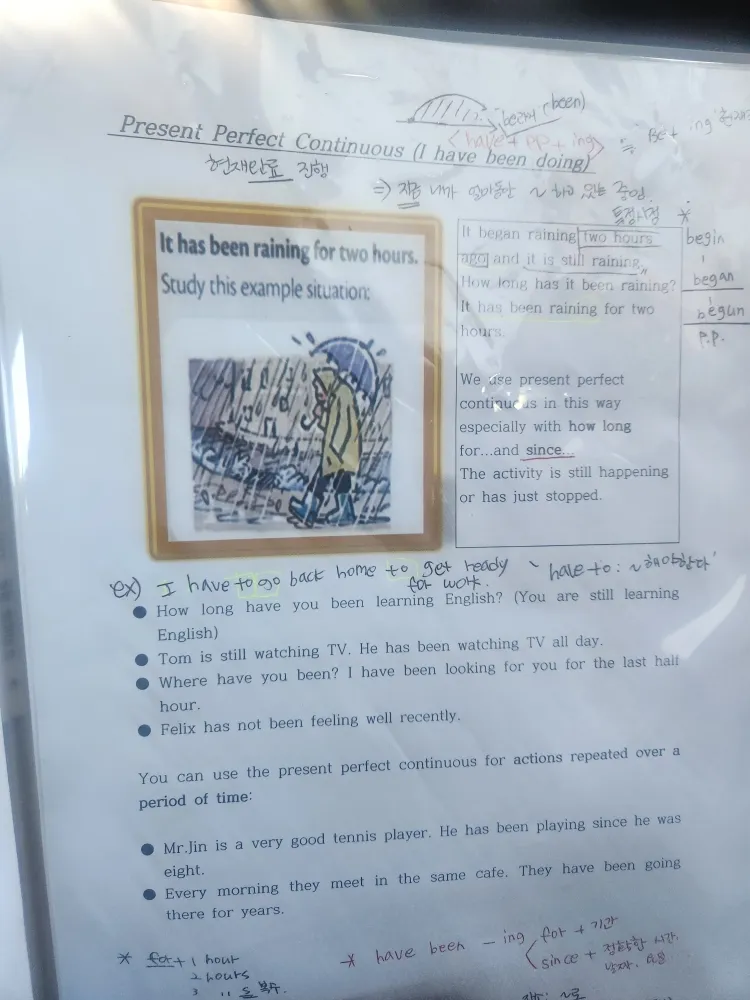 been)
Present Perfect Continuous (I have been doing)
<have + pp + ing>
≒ Be + ing
현재완료 진행
⇒ 지금 내가 얼마동안 ~ 하고 있는 중임.
특정시점 *
It has been raining for two hours.
Study this example situation:
It began raining two hours
ago and it is still raining.
How long has it been raining?
It has been raining for two
hours.
We use present perfect
continuous in this way
especially with how long
for...and since...
The activity is still happening
or has just stopped.
begin
began
begun
P.P.
ex) I have to go back home to get ready
for work.
~ have to : ~해야한다'
● How long have you been learning English? (You are still learning
English)
● Tom is still watching TV. He has been watching TV all day.
● Where have you been? I have been looking for you for the last half
hour.
● Felix has not been feeling well recently.
You can use the present perfect continuous for actions repeated over a
period of time:
● Mr.Jin is a very good tennis player. He has been playing since he was
eight.
● Every morning they meet in the same cafe. They have been going
there for years.
* for + 1 hour
2 hours
3 " 복수.
* have been - ing
for + 기간
since + 정확한 시간.
날짜.